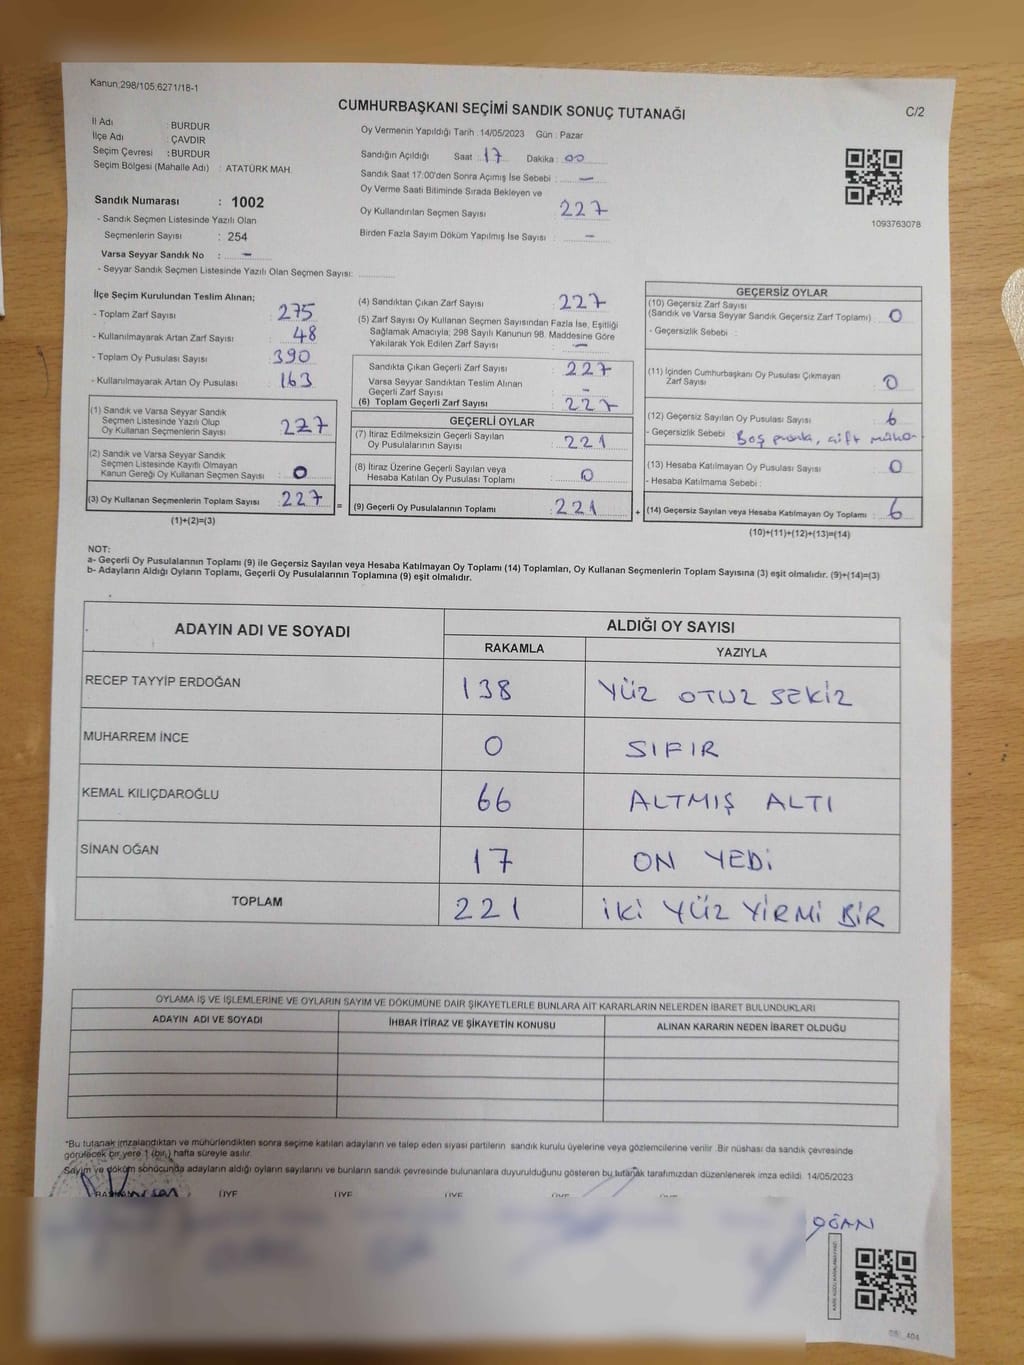 Kanun:298/105;6271/18-1
CUMHURBAŞKANI SEÇİMİ SANDIK SONUÇ TUTANAĞI
C/2
İl Adı : BURDUR
İlçe Adı : ÇAVDIR
Seçim Çevresi : BURDUR
Seçim Bölgesi (Mahalle Adı) : ATATÜRK MAH.
Sandık Numarası : 1002
- Sandık Seçmen Listesinde Yazılı Olan
Seçmenlerin Sayısı : 254
Varsa Seyyar Sandık No : -
- Seyyar Sandık Seçmen Listesinde Yazılı Olan Seçmen Sayısı: ............
Oy Vermenin Yapıldığı Tarih :14/05/2023 Gün : Pazar
Sandığın Açıldığı Saat : 17 Dakika : 00
Sandık Saat 17:00'den Sonra Açımış İse Sebebi : -
Oy Verme Saati Bitiminde Sırada Bekleyen ve
Oy Kullandırılan Seçmen Sayısı 227
Birden Fazla Sayım Döküm Yapılmış İse Sayısı : -
1093763078
İlçe Seçim Kurulundan Teslim Alınan;
- Toplam Zarf Sayısı : 275
- Kullanılmayarak Artan Zarf Sayısı : 48
- Toplam Oy Pusulası Sayısı : 390
- Kullanılmayarak Artan Oy Pusulası : 163
(1) Sandık ve Varsa Seyyar Sandık
Seçmen Listesinde Yazılı Olup
Oy Kullanan Seçmenlerin Sayısı : 227
(2) Sandık ve Varsa Seyyar Sandık
Seçmen Listesinde Kayıtlı Olmayan
Kanun Gereği Oy Kullanan Seçmen Sayısı : 0
(3) Oy Kullanan Seçmenlerin Toplam Sayısı : 227
(1)+(2)=(3)
=
(4) Sandıktan Çıkan Zarf Sayısı : 227
(5) Zarf Sayısı Oy Kullanan Seçmen Sayısından Fazla İse, Eşitliği
Sağlamak Amacıyla; 298 Sayılı Kanunun 98. Maddesine Göre
Yakılarak Yok Edilen Zarf Sayısı : -
Sandıkta Çıkan Geçerli Zarf Sayısı : 227
Varsa Seyyar Sandıktan Teslim Alınan
Geçerli Zarf Sayısı : -
(6) Toplam Geçerli Zarf Sayısı : 227
GEÇERLİ OYLAR
(7) İtiraz Edilmeksizin Geçerli Sayılan
Oy Pusulalarının Sayısı : 221
(8) İtiraz Üzerine Geçerli Sayılan veya
Hesaba Katılan Oy Pusulası Toplamı : 0
(9) Geçerli Oy Pusulalarının Toplamı : 221
+
GEÇERSİZ OYLAR
(10) Geçersiz Zarf Sayısı
(Sandık ve Varsa Seyyar Sandık Geçersiz Zarf Toplamı) : 0
- Geçersizlik Sebebi :
(11) İçinden Cumhurbaşkanı Oy Pusulası Çıkmayan
Zarf Sayısı : 0
(12) Geçersiz Sayılan Oy Pusulası Sayısı : 6
- Geçersizlik Sebebi : Boş pusula, çift mühür
(13) Hesaba Katılmayan Oy Pusulası Sayısı : 0
- Hesaba Katılmama Sebebi :
(14) Geçersiz Sayılan veya Hesaba Katılmayan Oy Toplamı : 6
(10)+(11)+(12)+(13)=(14)
NOT:
a- Geçerli Oy Pusulalarının Toplamı (9) ile Geçersiz Sayılan veya Hesaba Katılmayan Oy Toplamı (14) Toplamları, Oy Kullanan Seçmenlerin Toplam Sayısına (3) eşit olmalıdır. (9)+(14)=(3)
b- Adayların Aldığı Oyların Toplamı, Geçerli Oy Pusulalarının Toplamına (9) eşit olmalıdır.
ADAYIN ADI VE SOYADI ALDIĞI OY SAYISI
RAKAMLA YAZIYLA
RECEP TAYYİP ERDOĞAN 138 YÜZ OTUZ SEKİZ
MUHARREM İNCE 0 SIFIR
KEMAL KILIÇDAROĞLU 66 ALTMIŞ ALTI
SİNAN OĞAN 17 ON YEDİ
TOPLAM 221 İKİ YÜZ YİRMİ BİR
OYLAMA İŞ VE İŞLEMLERİNE VE OYLARIN SAYIM VE DÖKÜMÜNE DAİR ŞİKAYETLERLE BUNLARA AİT KARARLARIN NELERDEN İBARET BULUNDUKLARI
ADAYIN ADI VE SOYADI İHBAR İTİRAZ VE ŞİKAYETİN KONUSU ALINAN KARARIN NEDEN İBARET OLDUĞU
*Bu tutanak imzalandıktan ve mühürlendikten sonra seçime katılan adayların ve talep eden siyasi partilerin sandık kurulu üyelerine veya gözlemcilerine verilir. Bir nüshası da sandık çevresinde
görülecek bir yere 1 (bir) hafta süreyle asılır.
Sayım ve döküm sonucunda adayların aldığı oyların sayılarını ve bunların sandık çevresinde bulunanlara duyurulduğunu gösteren bu tutanak tarafımızdan düzenlenerek imza edildi. 14/05/2023
BAŞKAN ÜYE ÜYE ÜYE ÜYE ÜYE
OĞAN